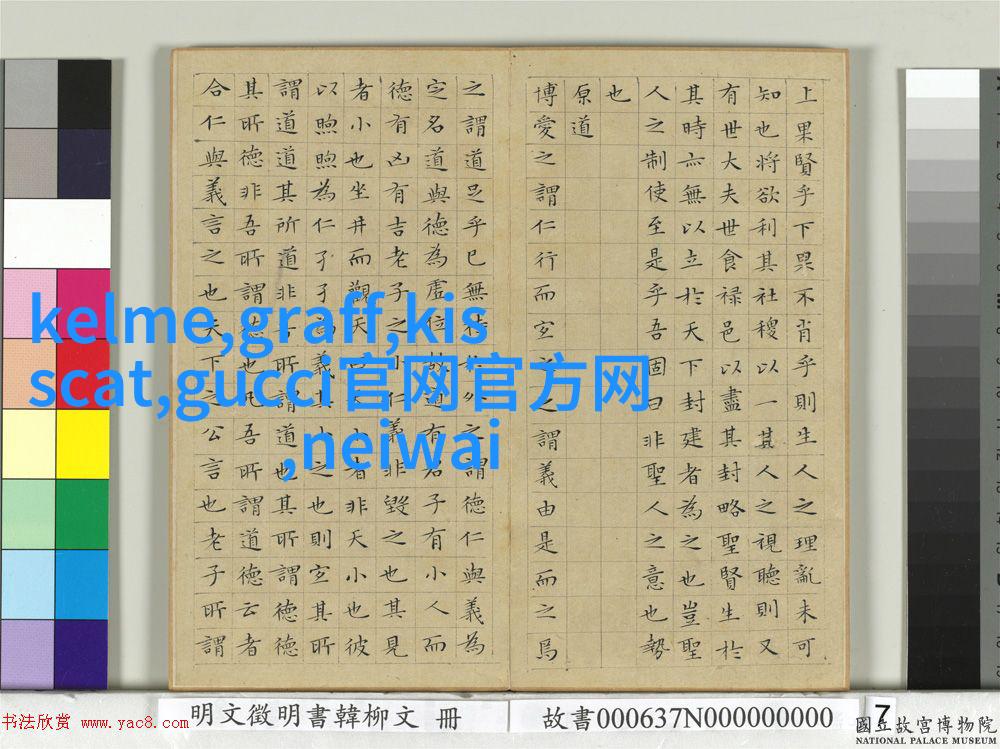 上果賢乎下果不肖乎則生人之理亂未可
知也將欲利其社稷以一其人之視聽則又
有世大夫世食祿邑以盡其封略聖賢生於
其時亦無以立於天下封建者為之也豈聖
人之制使至是乎吾固曰非聖人之意也勢
也
原道
博愛之謂仁行而宜之之謂義由是而之焉
之謂道足乎已無待於外之謂德仁與義為
定名道與德為虛位故道有君子有小人而
德有凶有吉老子之小仁義非毀之也其見
者小也坐井而觀天曰天小者非天小也彼
以煦煦為仁孑孑為義其小之也則宜其所
謂道道其所道非吾所謂道也其所謂德德
其所德非吾所謂德也凡吾所謂道德云者
合仁與義言之也天下之公言也老子所謂
kelme,graff,kis
scat,gucci官网官方网
,neiwai
明文徵明書韓柳文 冊
故書000637N000000000
7
書法欣赏 www.yac8.com
國立故宮博物院
NATIONAL PALACE MUSEUM